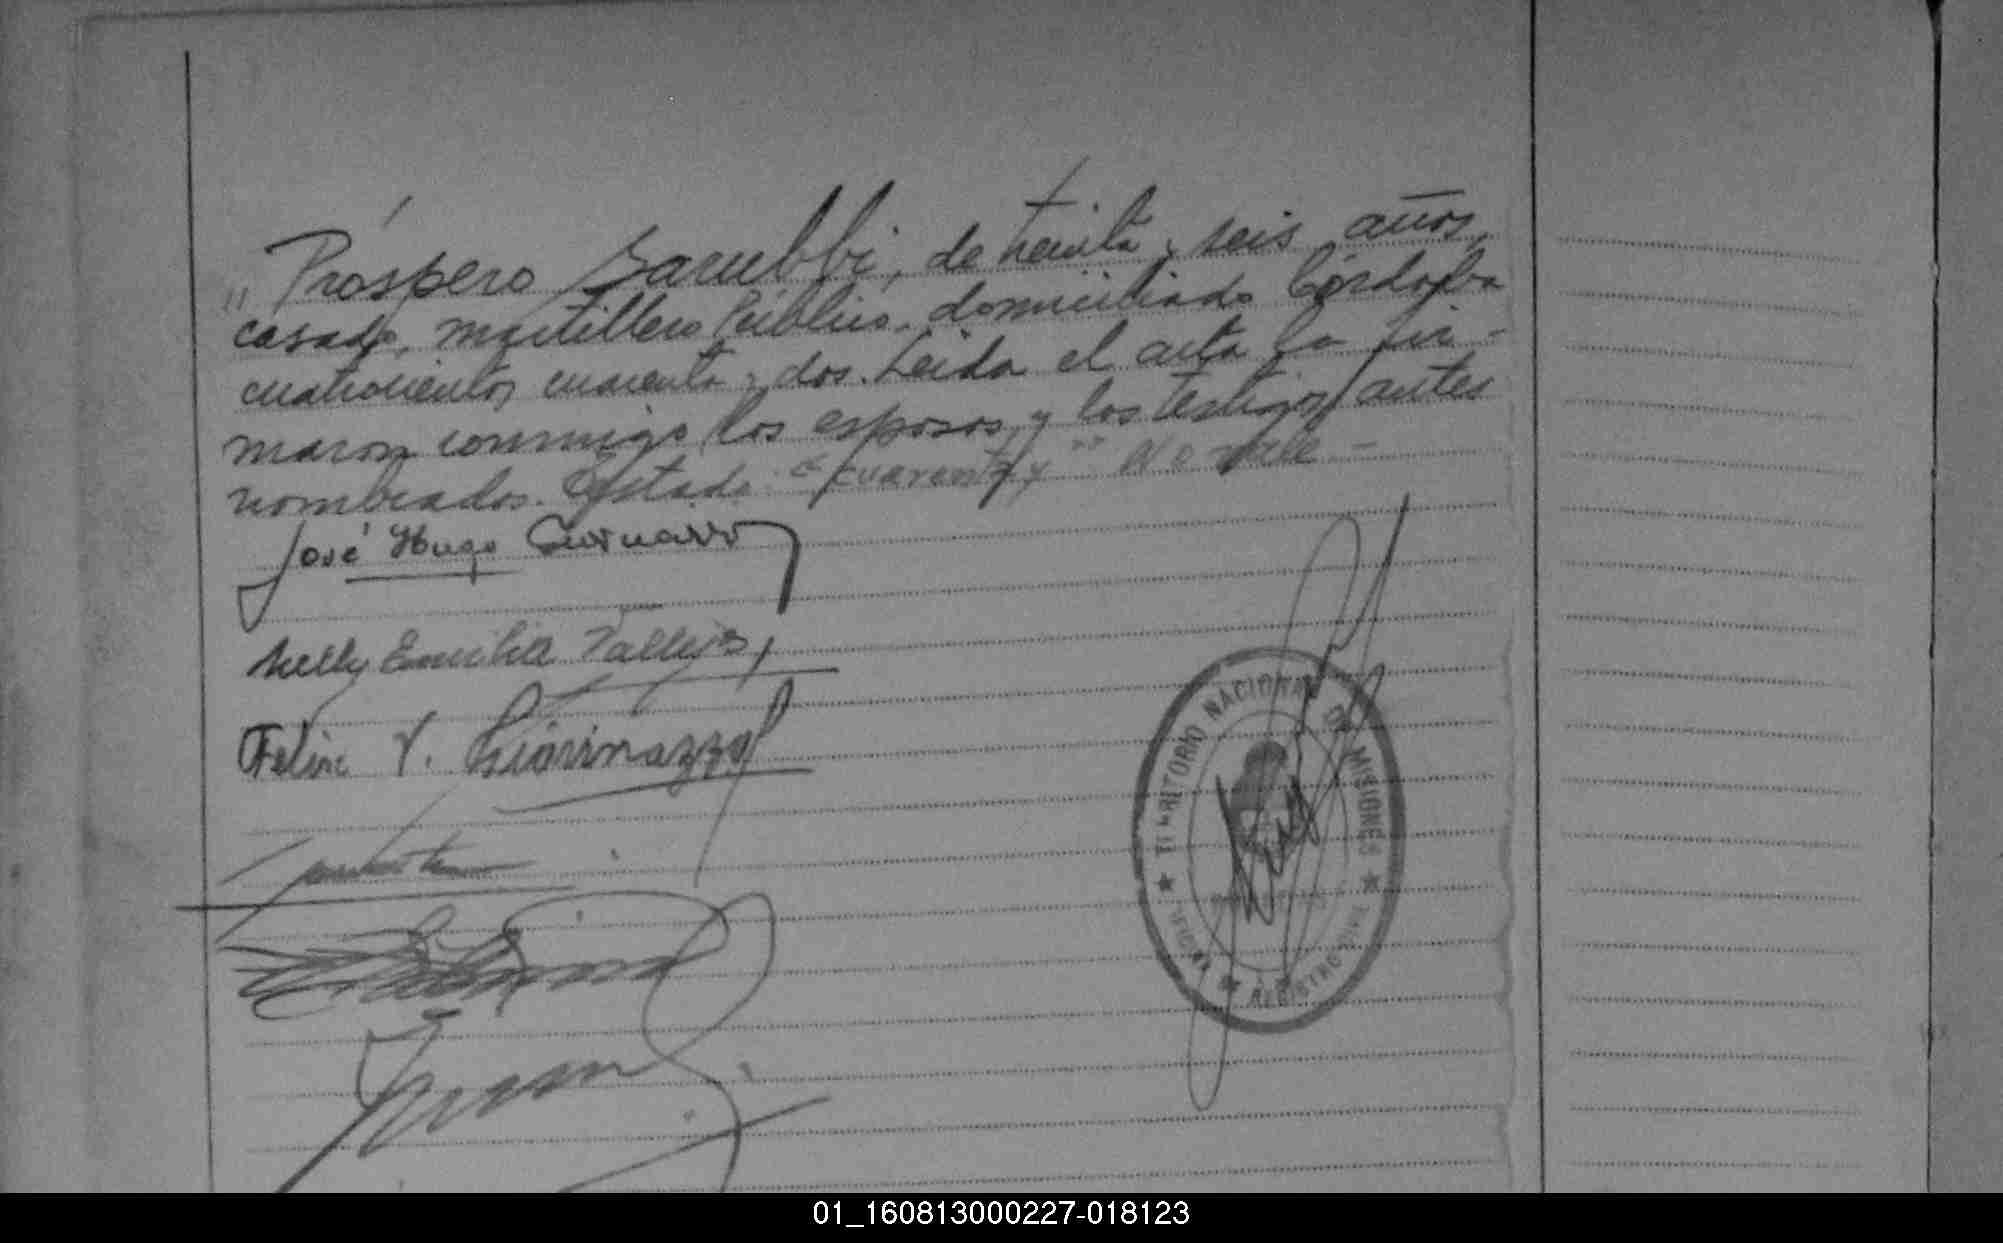 " Próspero Sarubbi, de treinta y seis años,
casado, martillero Público, domiciliado Córdoba
cuatrocientos cuarenta y dos. Leida el acta la fir-
maron conmigo los esposos y los testigos antes
nombrados. Testado: "cuarenta y" No vale -
José Hugo
Nelly Emilia Vallejos
Felix V. Giavinazzo
TERRITORIO NACIONAL DE MISIONES
OFICINA DE REGISTRO CIVIL
01_160813000227-018123